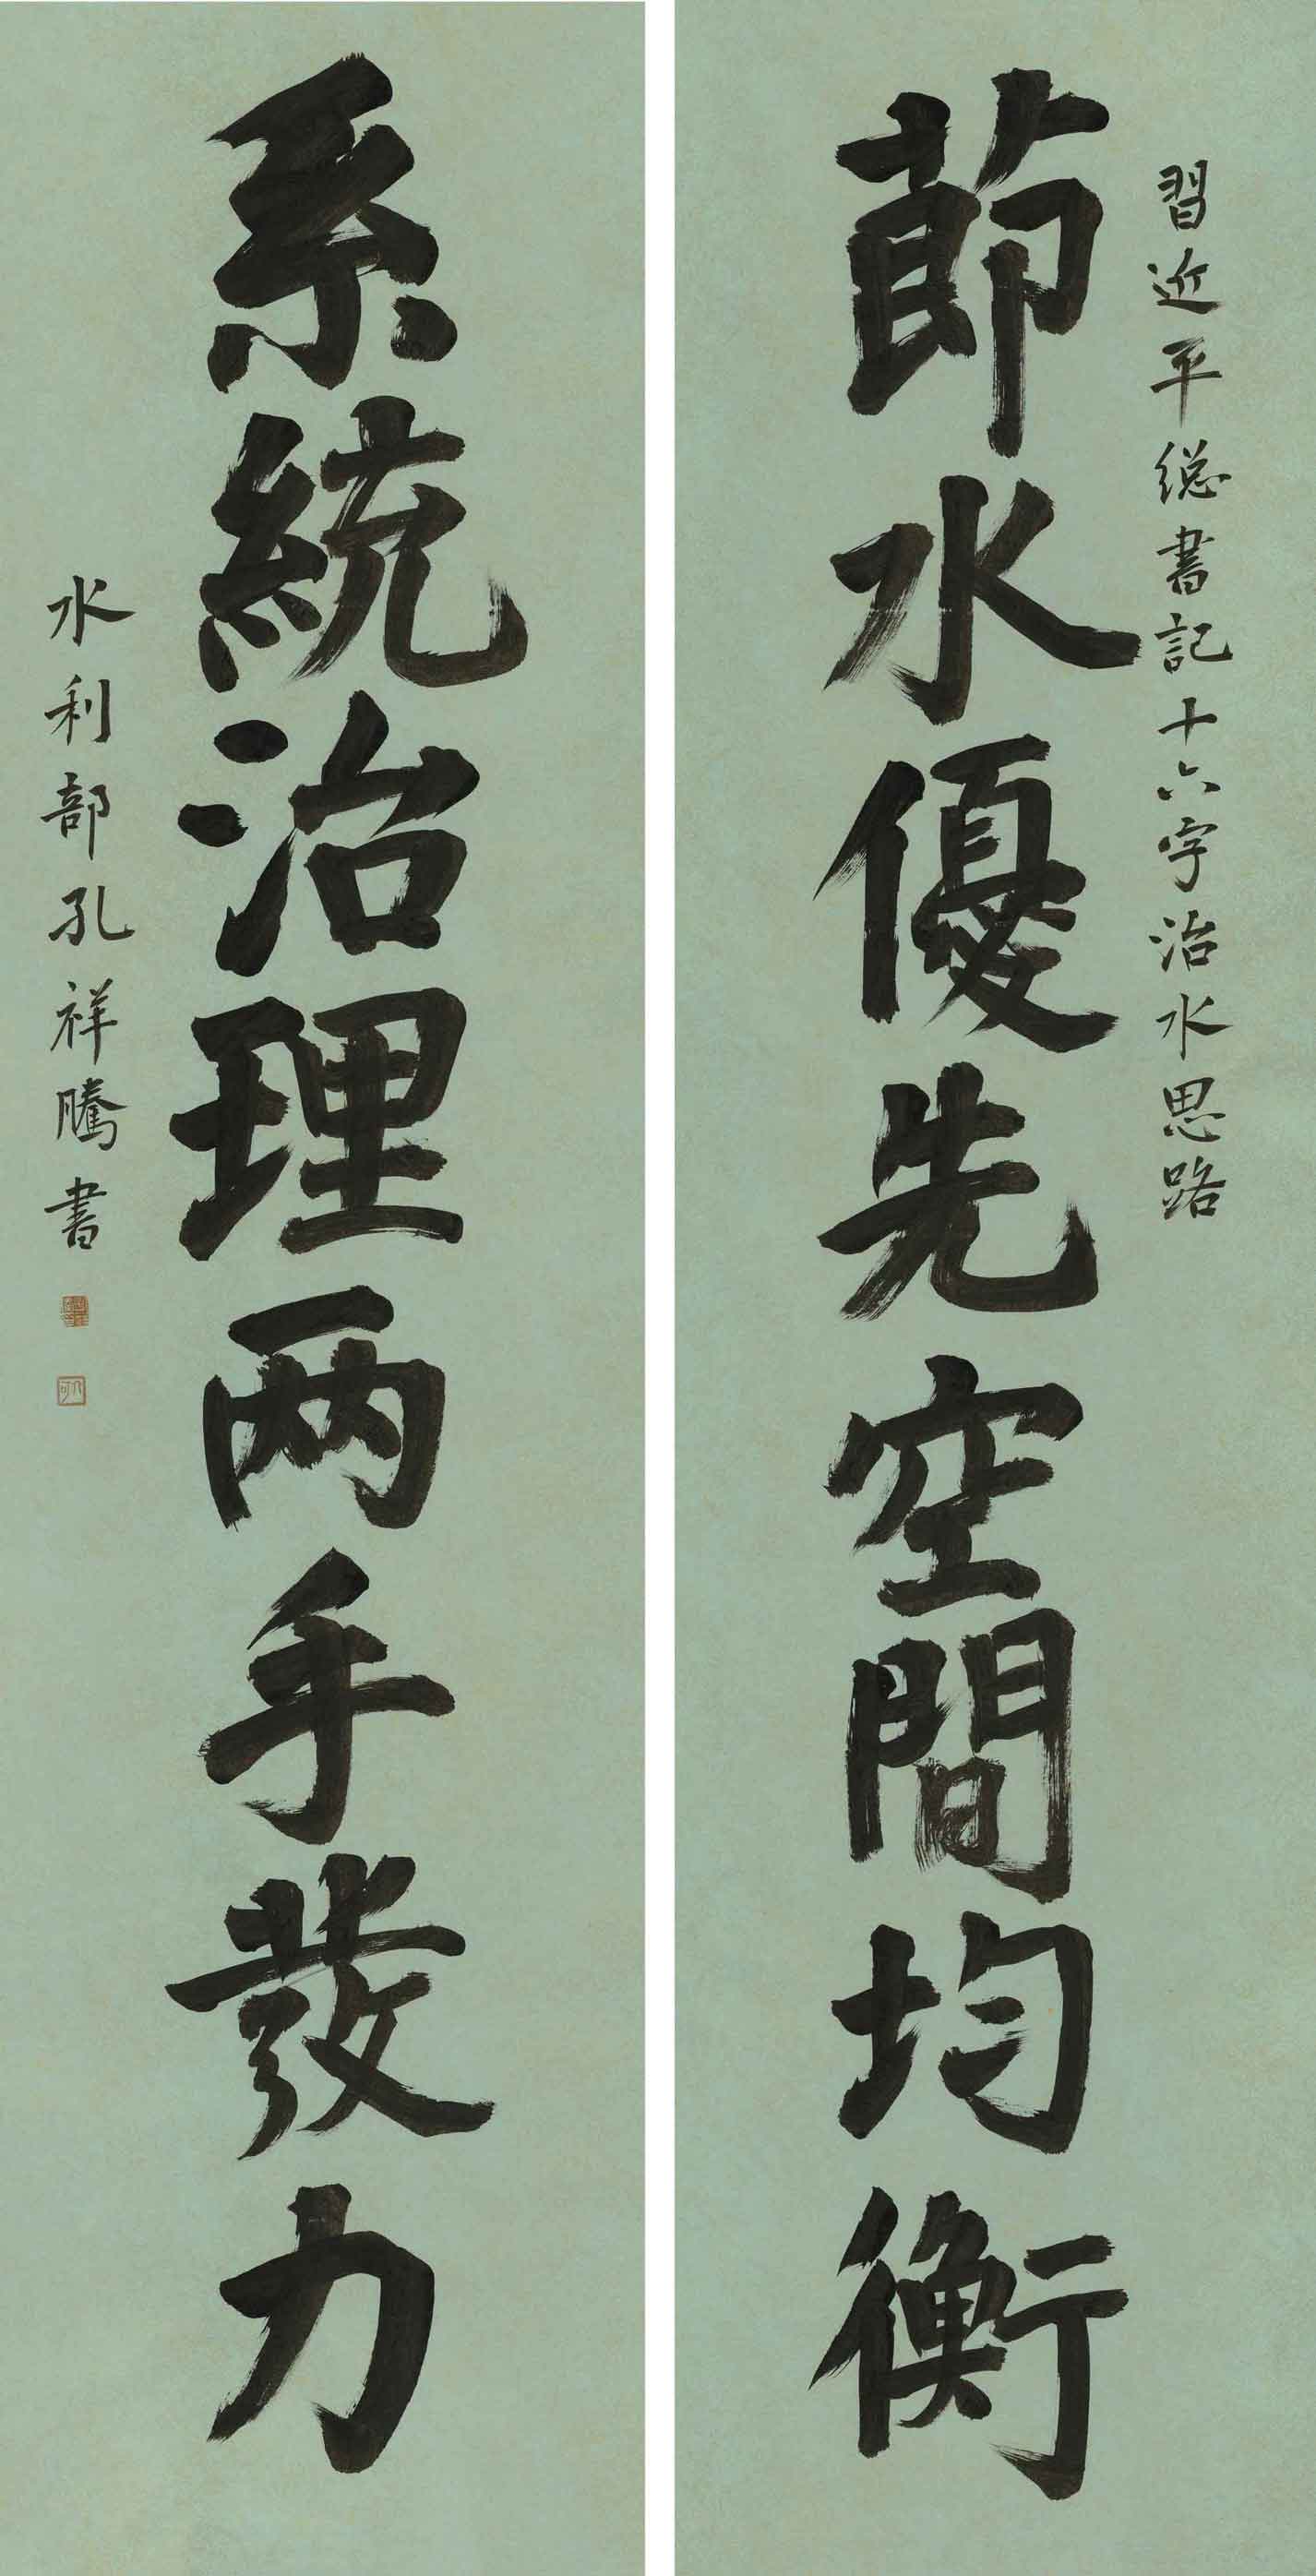 習近平總書記十六字治水思路
節水優先空間均衡
系統治理两手發力
水利部孔祥騰書